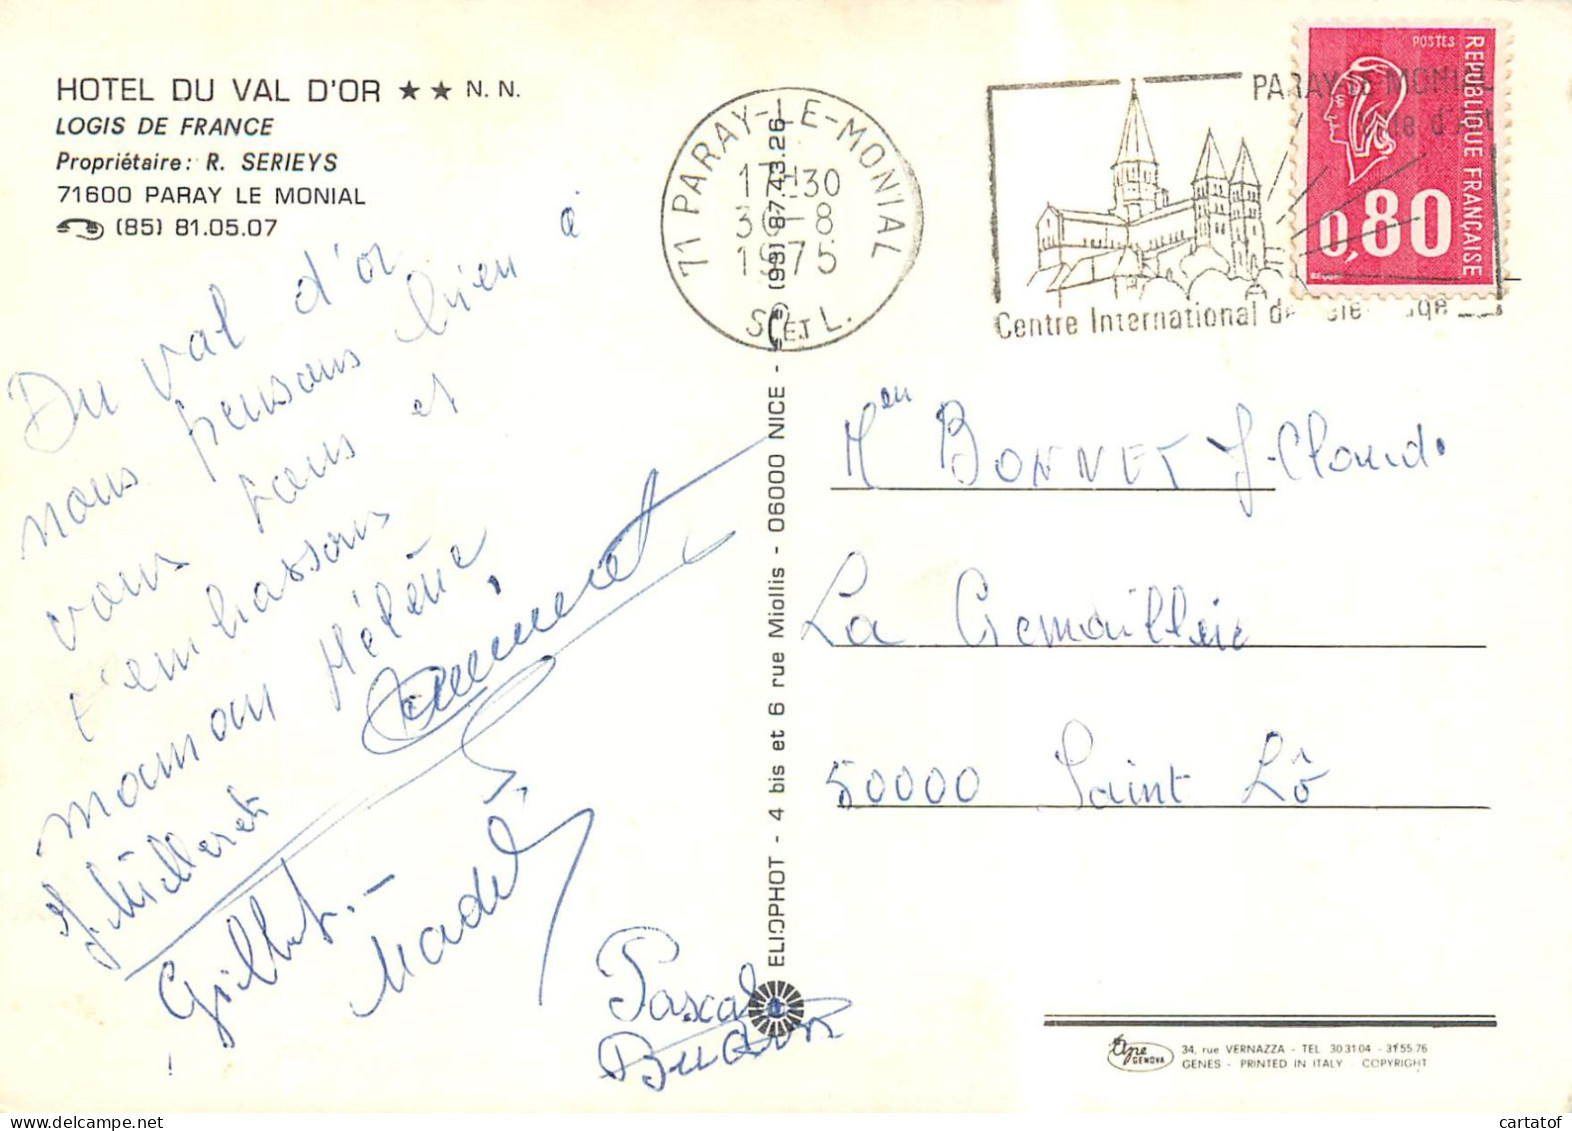 HOTEL DU VAL D'OR ★★ N. N.
LOGIS DE FRANCE
Propriétaire : R. SERIEYS
71600 PARAY LE MONIAL
(85) 81.05.07
Du val d'or
nous pensons bien à
vous tous et
t'embrassons
maman Hélène,
Gilbert.-
Pascal
71 PARAY-LE-MONIAL
17H30
30-8
1975
S. ET L.
PARAY-LE-MONIAL
Ville d'Art
Centre International de
POSTES
REPUBLIQUE FRANÇAISE
0,80
ELIOPHOT - 4 bis et 6 rue Miollis - 06000 NICE - (93) 87.43.26
BONNET J-Claude
La
50000 Saint Lô
GENOVA
34, rue VERNAZZA - TEL 303104 - 315576
GENES - PRINTED IN ITALY COPYRIGHT
cartatof